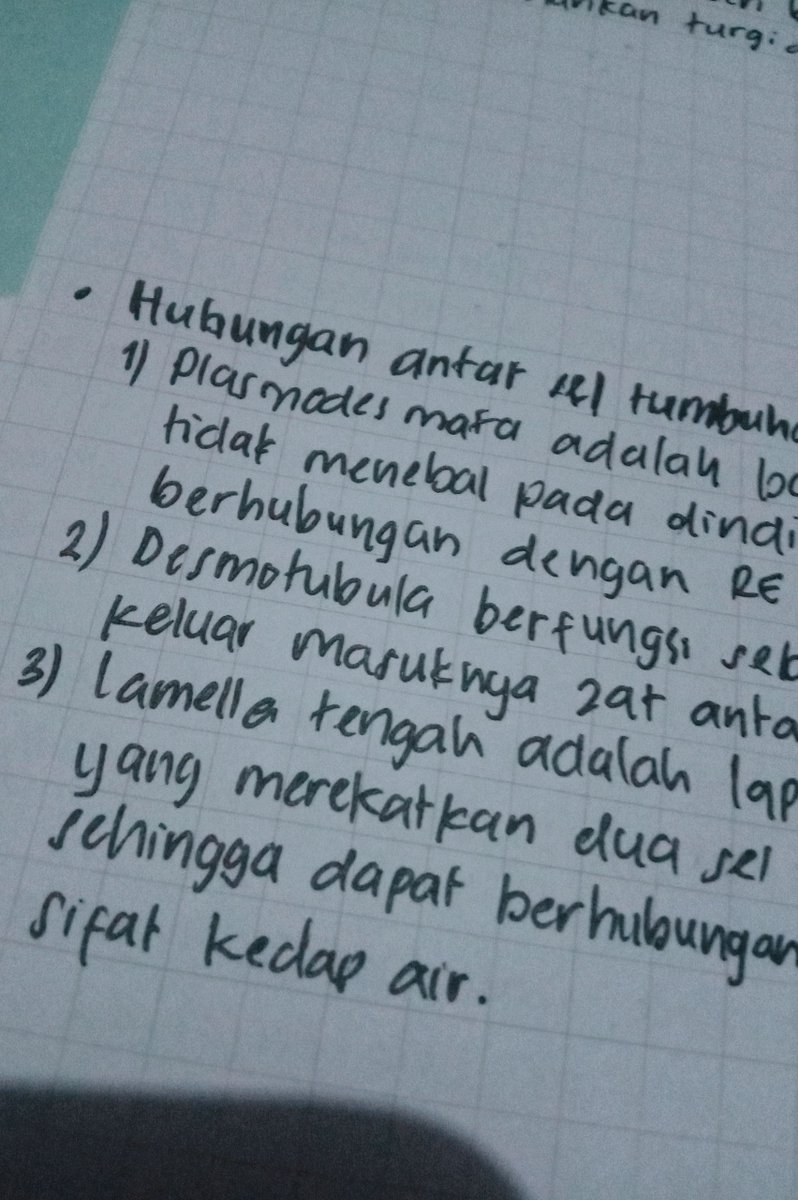 turgi
• Hubungan antar sel
1) Plasmodesmata adalah
tidak menebal pada
berhubungan dengan RE
2) Desmotubula berfungsi
keluar masuknya zat
3) Lamella tengah adalah
yang merekatkan dua sel
sehingga dapat berhubungan
sifat kedap air.